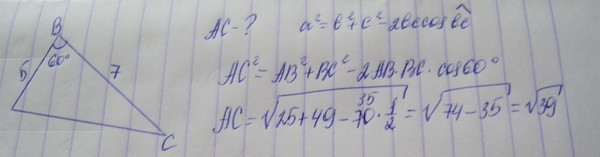 B
5
60°
7
C
AC - ? a² = b² + c² - 2bc cos b̂c
AC² = AB² + BC² - 2AB·BC·cos60°
AC = √(25 + 49 - 70 · 1/2) = √(74 - 35) = √39
35